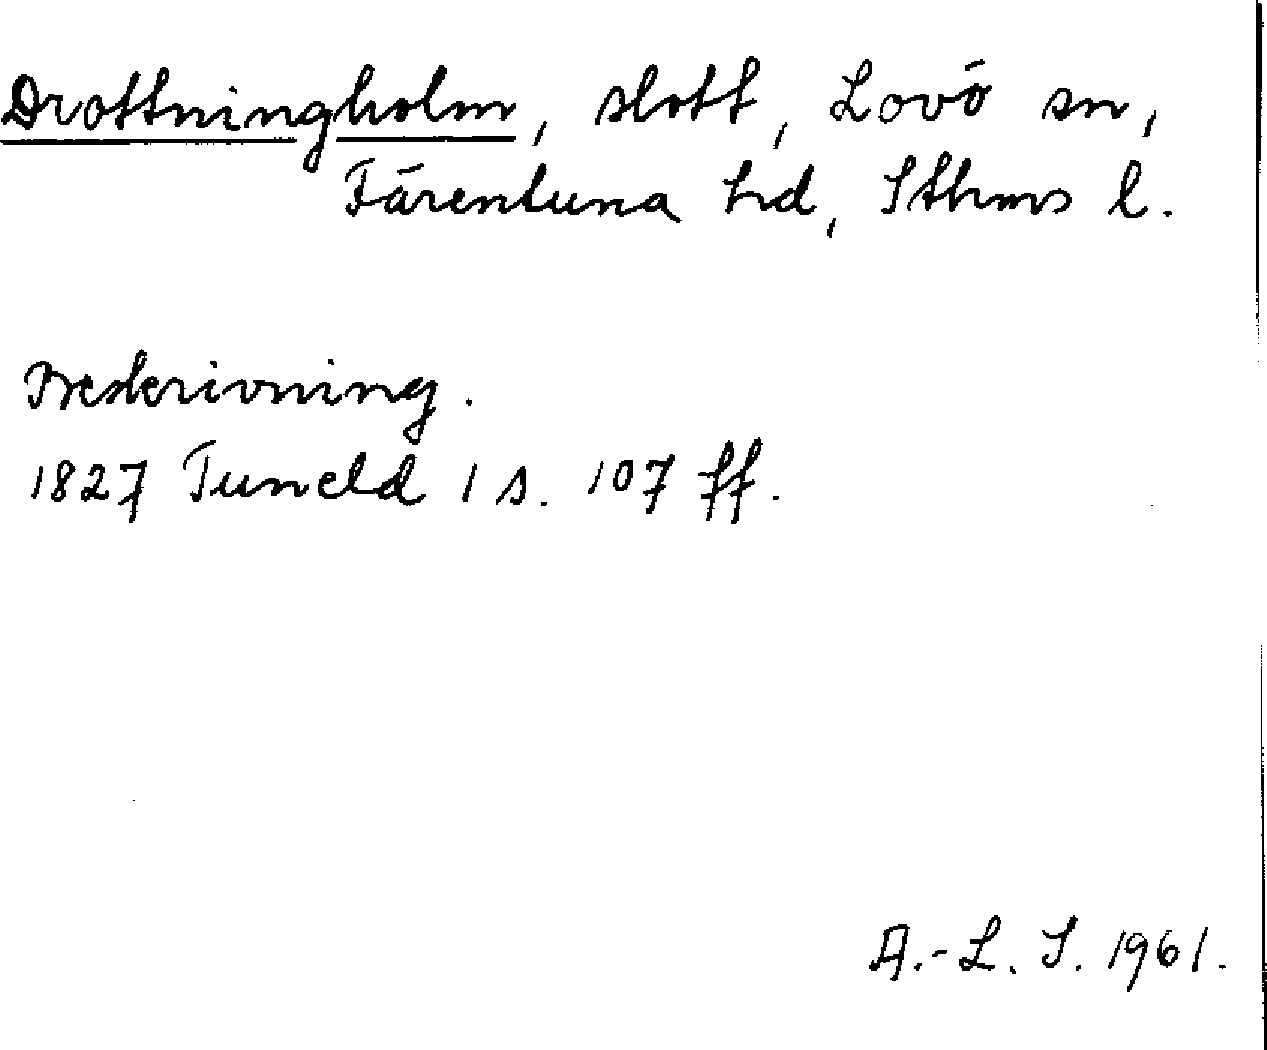 Drottningholm, slott, Lovö sn,
Färentuna hd, Sthms l.
Beskrivning.
1827 Tuneld 1 s. 107 ff.
A.-L. S. 1961.